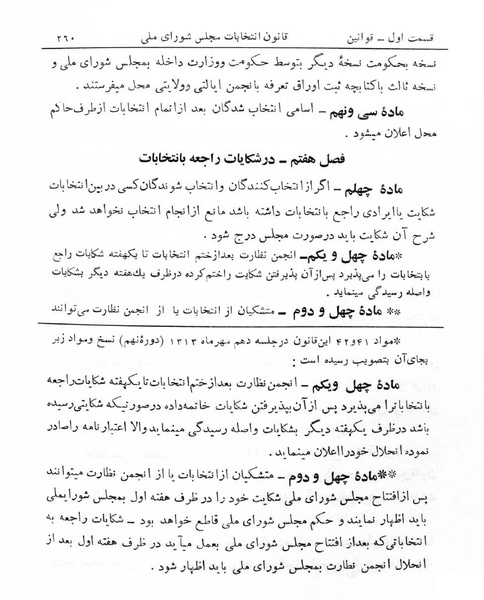 قسمت اول ــ قوانین قانون انتخابات مجلس شورای ملی ۲۶۰
نسخه بحکومت نسخهٔ دیگر بتوسط حکومت ووزارت داخله بمجلس شورای ملی و
نسخه ثالث باکتابچه ثبت اوراق تعرفه بانجمن ایالتی وولایتی محل میفرستند .
مادهٔ سی ونهم ــ اسامی انتخاب شدگان بعد ازاتمام انتخابات ازطرف حاکم
محل اعلان میشود .
فصل هفتم ــ درشکایات راجعه بانتخابات
مادهٔ چهلم ــ اگرازانتخاب کنندگان وانتخاب شوندگان کسی دربین انتخابات
شکایت یاایرادی راجع بانتخابات داشته باشد مانع ازانجام انتخاب نخواهد شد ولی
شرح آن شکایت باید درصورت مجلس درج شود .
*مادهٔ چهل ویکم ــ انجمن نظارت بعدازختم انتخابات تا یکهفته شکایات راجع
بانتخابات را می‌پذیرد پس ازآن پذیرفتن شکایت راختم کرده درظرف یك هفته دیگر بشکایات
واصله رسیدگی مینماید .
** مادهٔ چهل و دوم ــ متشکیان از انتخابات یا از انجمن نظارت می‌توانند
*مواد ۴۱و۴۲ این قانون درجلسه دهم مهرماه ۱۳۱۳ (دورهٔنهم) نسخ ومواد زیر
بجای آن بتصویب رسیده است :
مادهٔ چهل ویکم ــ انجمن نظارت بعدازختم انتخابات تا یکهفته شکایات راجعه
بانتخابات رامی‌پذیرد پس ازآن بپذیرفتن شکایات خاتمه داده درصورتیکه شکایتی رسیده
باشد درظرف یکهفته دیگر بشکایات واصله رسیدگی مینماید والا اعتبار نامه راصادر
نموده انحلال خودرااعلان مینماید .
**مادهٔ چهل و دوم ــ متشکیان ازانتخابات یا از انجمن نظارت میتوانند
پس ازافتتاح مجلس شورای ملی شکایت خود را در ظرف هفته اول بمجلس شورایملی
باید اظهار نمایند و حکم مجلس شورای ملی قاطع خواهد بود ــ شکایات راجعه به
انتخاباتی که بعداز افتتاح مجلس شورای ملی بعمل میآید در ظرف هفته اول بعد از
انحلال انجمن نظارت بمجلس شورای ملی باید اظهار شود .